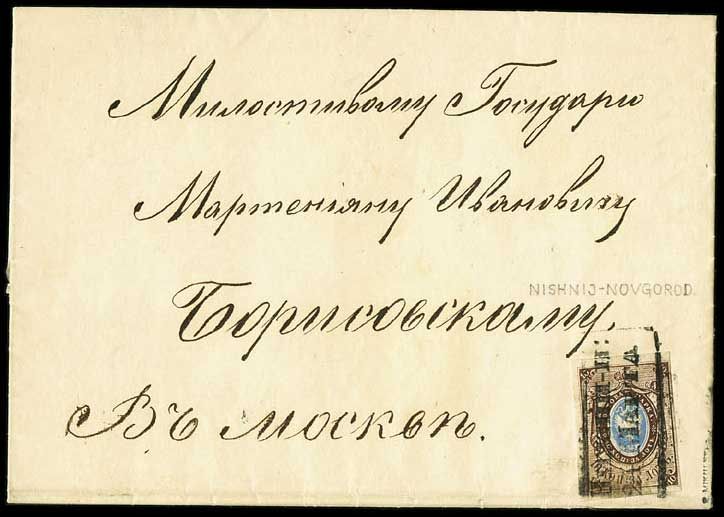 Милостивому Государю
Мартеніяну Ивановичу
NISHNIJ-NOVGOROD.
Борисовскому.
Въ Москвѣ.